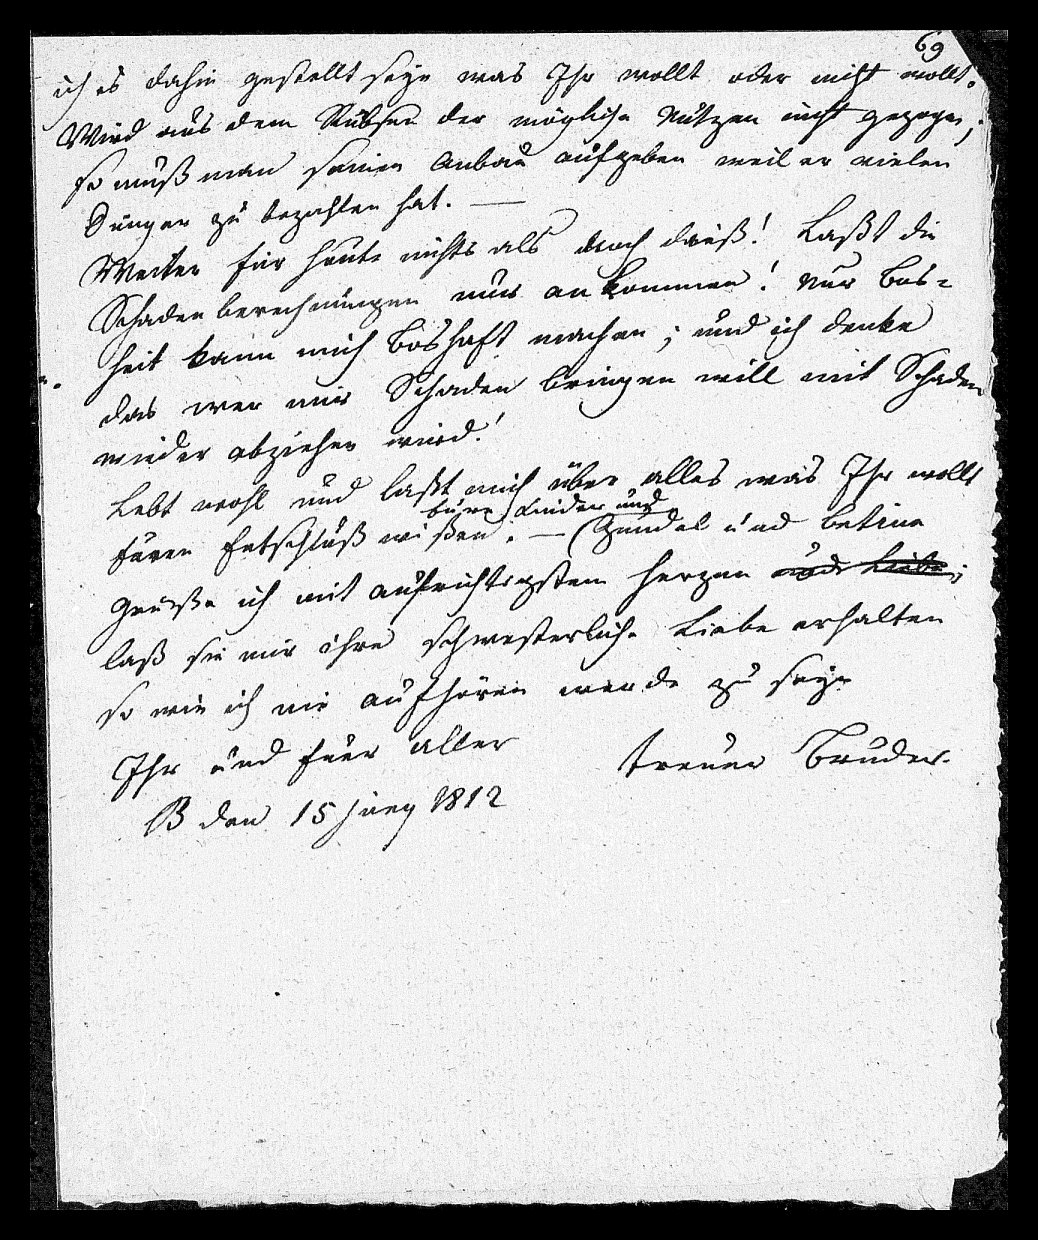 69
ich es dahin gestellt seyn was Ihr wollt oder nicht wollt.
Wird aus dem Rübsen der mögliche Nutzen nicht gezogen,
so muß man seinen Anbau aufgeben weil er vielen
Dünger zu bezahlen hat. —
Weiter für heute nichts als noch dieß! Laßt die
Schadenberechnungen nur ankommen! nur Bos-
heit kann mich boshaft machen; und ich denke
das wer mir Schaden bringen will mit Schaden
wieder abziehen wird!
Lebt wohl und laßt mich über alles was Ihr wollt
Eure Kinder und
Euren Entschluß wißen. — Gundel und Betine
Grüße ich mit aufrichtigstem Herzen und Liebe;
laß sie mir ihre schwesterliche Liebe erhalten
so wie ich nie aufhören werde zu seyn
Ihr und Euer aller treuer Bruder.
B den 15 Juny 1812